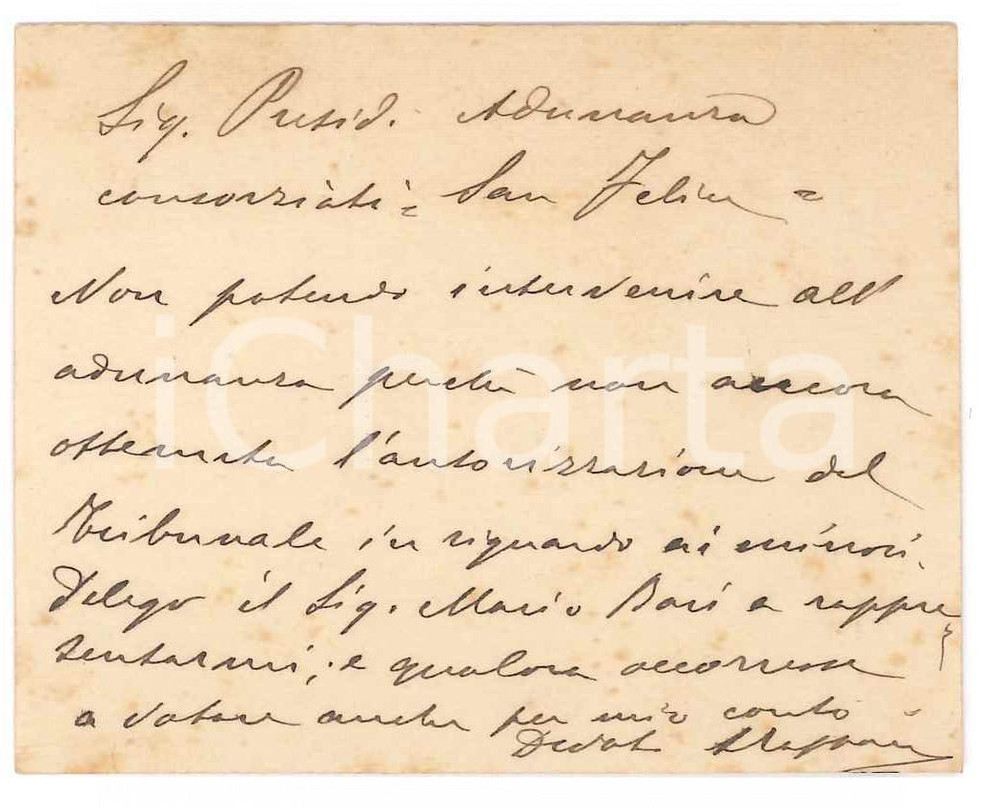 Sig. Presid. Adunanza
consorziati = San Felice =
Non potendo intervenire all'
adunanza perchè non ancora
ottenuta l'autorizzazione del
Tribunale in riguardo ai minori.
Delego il Sig. Mario Bari a rappre
sentarmi; e qualora occorresse
a votare anche per mio conto -
iCharta